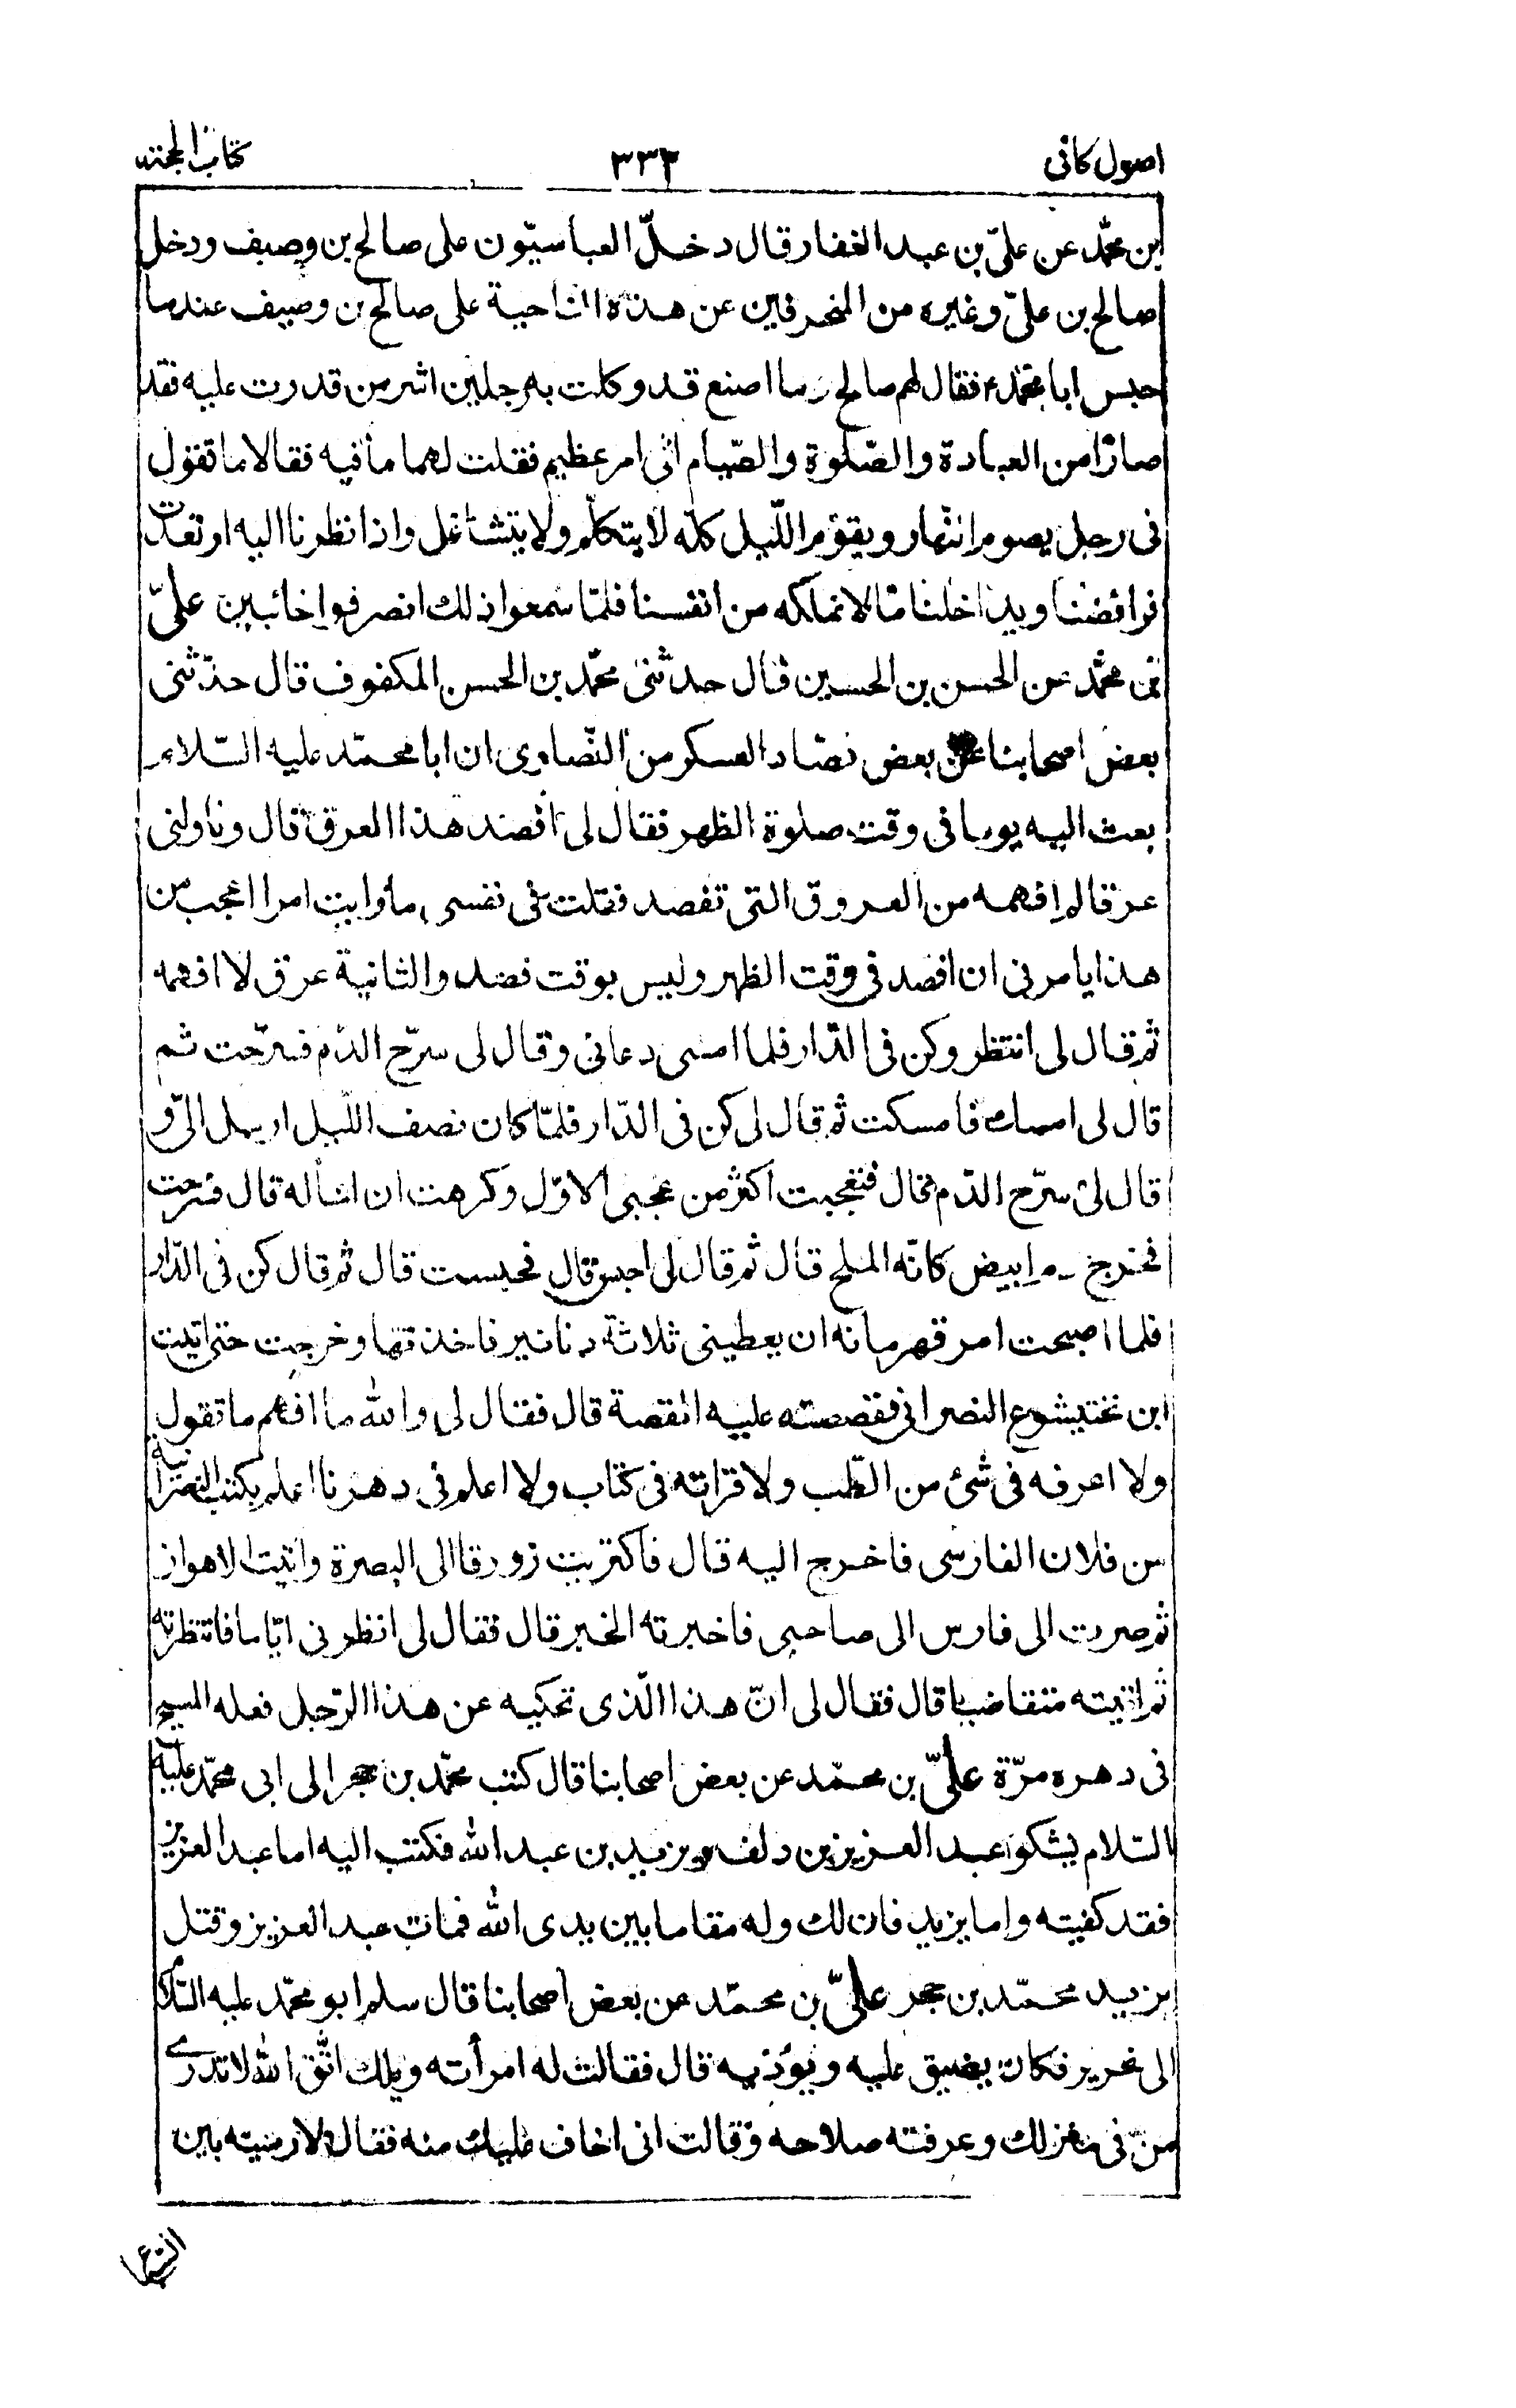 اصول كافى
٣٣٣
كتاب الحجته
بن محمّد عن علىّ بن عبد الغفار قال دخلّ العباسيّون على صالح بن وصيف ودخل
صالح بن علىّ وغيره من المنحرفين عن هذه الناحية على صالح بن وصيف عندما
حبس ابا محمّدء فقال لهم صالح وما اصنع قد وكلت به رجلين اشر من قدرت عليه فقد
صارا من العبادة والصّلوة والصّيام الى امر عظيم فقلت لهما ما فيه فقالا ما تقول
فى رجل يصوم النّهار ويقوم اللّيل كلّه لا يتكلّم ولا يتشاغل واذا نظرنا اليه ارتعدت
فرائصنا ويداخلنا مّا لا نملكه من انفسنا فلمّا سمعوا ذلك انصرفوا خائبين علىّ
بن محمّد عن الحسن بن الحسين قال حدثنى محمّد بن الحسن المكفوف قال حدّثنى
بعض اصحابنا عن بعض فصّاد العسكر من النّصارى ان ابا محمّد عليه السّلام
بعث اليه يوما فى وقت صلوة الظهر فقال لى افصد هذا العرق قال وناولنى
عرقا لم افهمه من العروق التى تفصد فقلت فى نفسى ما رايت امرا اعجب من
هذا يامرنى ان افصد فى وقت الظهر وليس بوقت فصد والثانية عرق لا افهمه
ثم قال لى انتظر وكن فى الدّار فلما امسى دعانى وقال لى سرّح الدّم فسرّحت ثم
قال لى امسك فامسكت ثم قال لى كن فى الدّار فلمّا كان نصف اللّيل ارسل الىّ و
قال لى سرّح الدّم قال فتعجبت اكثر من عجبى الاوّل وكرهت ان اسأله قال فسرحت
فخرج دم ابيض كانّه الملح قال ثم قال لى احبس قال فحبست قال ثم قال كن فى الدّار
فلما اصبحت امر قهرمانه ان يعطينى ثلاثة دنانير فاخذتها وخرجت حتى اتيت
ابن بختيشوع النصرانى فقصصته عليه القصة قال فقال لى والله ما افهم ما تقول
ولا اعرفه فى شئ من الطّب ولا قراته فى كتاب ولا اعلم فى دهرنا اعلم بكتب النصرانية
من فلان الفارسى فاخرج اليه قال فاكتريت زورقا الى البصرة واتيت الاهواز
ثم صرت الى فارس الى صاحبى فاخبرته الخبر قال فقال لى انظرنى ايّاما فانتظرته
ثم اتيته متقاضيا قال فقال لى انّ هذا الّذى تحكيه عن هذا الرّجل فعله المسيح
فى دهره مرّة علىّ بن محمّد عن بعض اصحابنا قال كتب محمّد بن حجر الى ابى محمّد عليه
السّلام يشكو عبد العزيز بن دلف ويزيد بن عبد الله فكتب اليه اما عبد العزيز
فقد كفيته واما يزيد فان لك وله مقاما بين يدى الله فمات عبد العزيز وقتل
يزيد محمّد بن حجر علىّ بن محمّد عن بعض اصحابنا قال سلم ابو محمّد عليه السّلام
الى نحرير فكان يضيق عليه ويؤذيه قال فقالت له امرأته ويلك اتّق الله لا تدرى
من فى منزلك وعرفته صلاحه وقالت انى اخاف عليك منه فقال لارمنيّه بين
السّباع